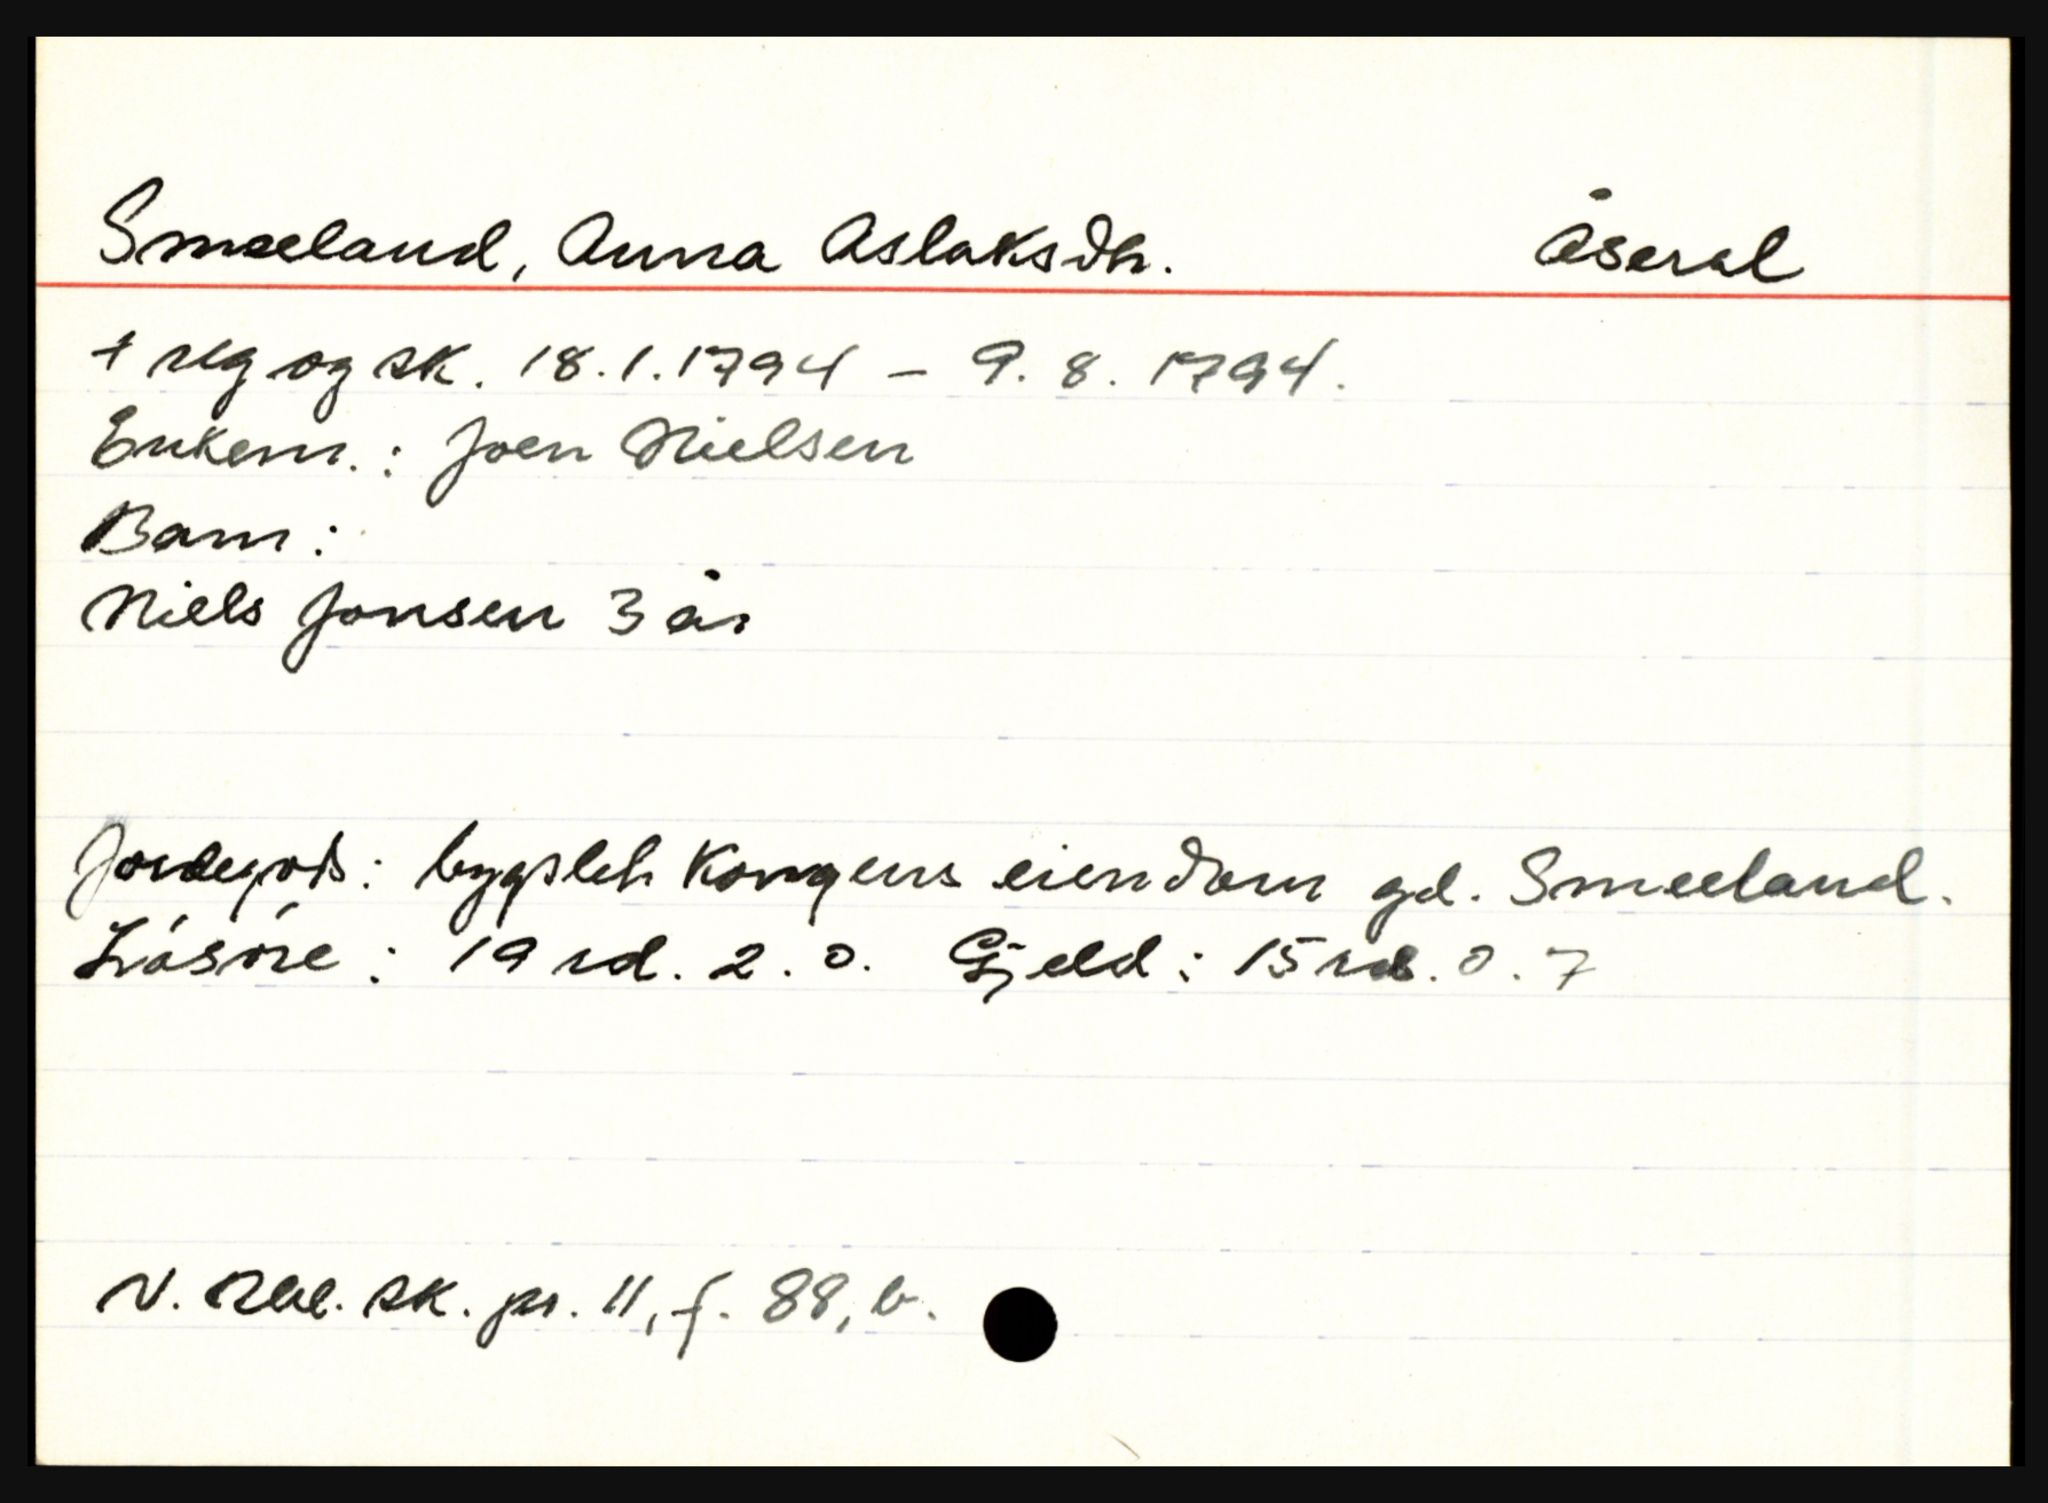 Smeeland, Anna Aslaksdtr. Åseral
+ reg og sk. 18.1.1794 - 9.8.1794.
Enkem.: Joen Nielsen
Barn:
Niels Jonsen 3 år
Jordegods: bygslet Kongens eiendom gd. Smeeland.
Lösöre: 19 rd. 2. 0. Gjeld: 15 rd. 0. 7
N. Rbl. sk. pr. 11, f. 88, b.